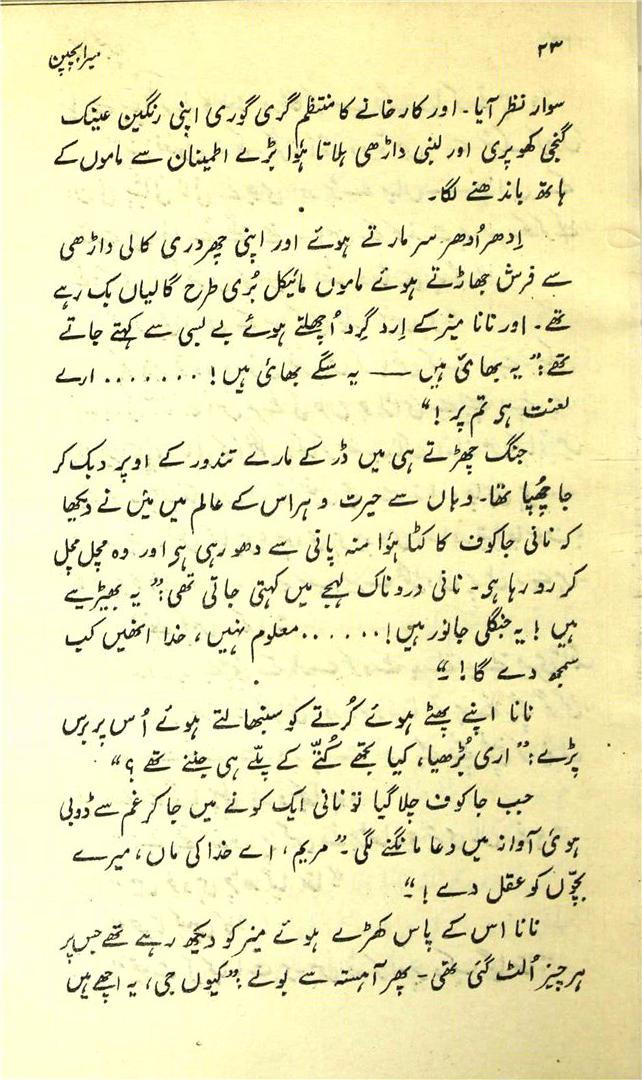 ۲۳
میرا بچپن
سوار نظر آیا۔ اور کارخانے کا منتظم گری گوری اپنی رنگین عینک
گنجی کھوپری اور لنبی داڑھی ہلاتا ہؤا بڑے اطمینان سے ماموں کے
ہاتھ باندھنے لگا۔
اِدھر اُدھر سر مارتے ہوئے اور اپنی چھدری کالی داڑھی
سے فرش جھاڑتے ہوئے ماموں مائیکل بُری طرح گالیاں بک رہے
تھے۔ اور نانا میز کے اِرد گرد اُچھلتے ہوئے بے بسی سے کہتے جاتے
تھے: ”یہ بھائی ہیں —— یہ سگے بھائی ہیں! ....... ارے
لعنت ہو تم پر!“
جنگ چھڑتے ہی میں ڈر کے مارے تندور کے اوپر دبک کر
جا چھُپا تھا۔ وہاں سے حیرت و ہراس کے عالم میں میں نے دیکھا
کہ نانی جاکوف کا کٹا ہؤا منہ پانی سے دھو رہی ہو اور وہ مچل مچل
کر رو رہا ہی۔ نانی دردناک لہجے میں کہتی جاتی تھی: ”یہ بھیڑیے
ہیں! یہ جنگلی جانور ہیں! ...... معلوم نہیں، خدا انھیں کب
سمجھ دے گا!۔“
نانا اپنے پھٹے ہوئے کُرتے کو سنبھالتے ہوئے اُس پر برس
پڑے: ”اری بُڑھیا، کیا تجھے کُتّے کے پلّے ہی جننے تھے؟“
جب جاکوف چلا گیا تو نانی ایک کونے میں جا کر غم سے ڈوبی
ہوئی آواز میں دعا مانگنے لگی۔ ”مریم، اے خدا کی ماں، میرے
بچّوں کو عقل دے!۔“
نانا اس کے پاس کھڑے ہوئے میز کو دیکھ رہے تھے جس پر
ہر چیز اُلٹ گئی تھی۔ پھر آہستہ سے بولے: ”کیوں جی، یہ اچھے ہیں